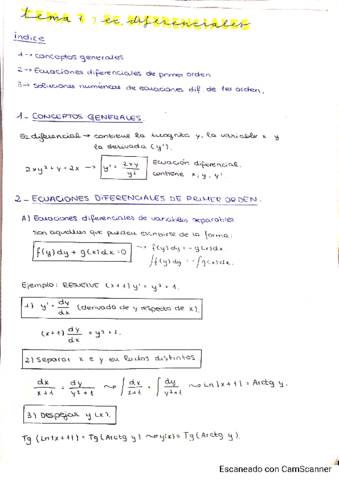 tema 7: ec diferenciales
índice
1→ conceptos generales
2→ Ecuaciones diferenciales de primer orden
3→ Soluciones numéricas de ecuaciones dif. de 1er orden.
1- CONCEPTOS GENERALES.
Ec diferencial → contiene la incognita y, la variable x y
la derivada (y').
2xy² + y = 2x → y' = 2xy / y² Ecuación diferencial.
contiene x, y, y'.
2- ECUACIONES DIFERENCIALES DE PRIMER ORDEN.
A) Ecuaciones diferenciales de variables separables
son aquellas que pueden escribirse de la forma:
f(y)dy + g(x)dx = 0 → f(y)dy = -g(x)dx
∫f(y)dy = -∫g(x)dx.
Ejemplo: RESUELVE (x+1) y' = y² + 1.
1) y' = dy/dx (derivada de y respecto de x).
(x+1) dy/dx = y² + 1.
2) Separar x e y en lados distintos
dx/x+1 = dy/y²+1 ⇝ ∫ dx/x+1 = ∫ dy/y²+1 ⇝ Ln|x+1| = Arctg y.
3) Despejar y(x).
Tg (Ln|x+1|) = Tg (Arctg y) ⇝ y(x) = Tg (Arctg y).
Escaneado con CamScanner